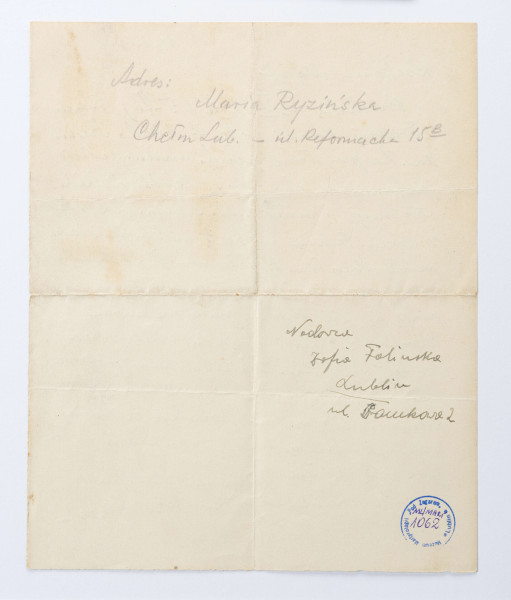 Adres:
Maria Ryzińska
Chełm Lub. – ul. Reformacka 15 B
Nadawca
Zofia Falinska
Lublin
ul. 2
1062